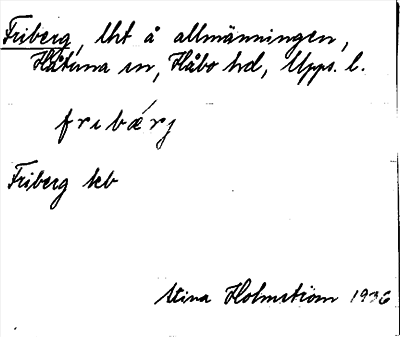 Friberg, lht å allmänningen,
Håtuna sn, Håbo hd, Upps. l.
fribǽrj
Friberg kb
Stina Holmström 1936